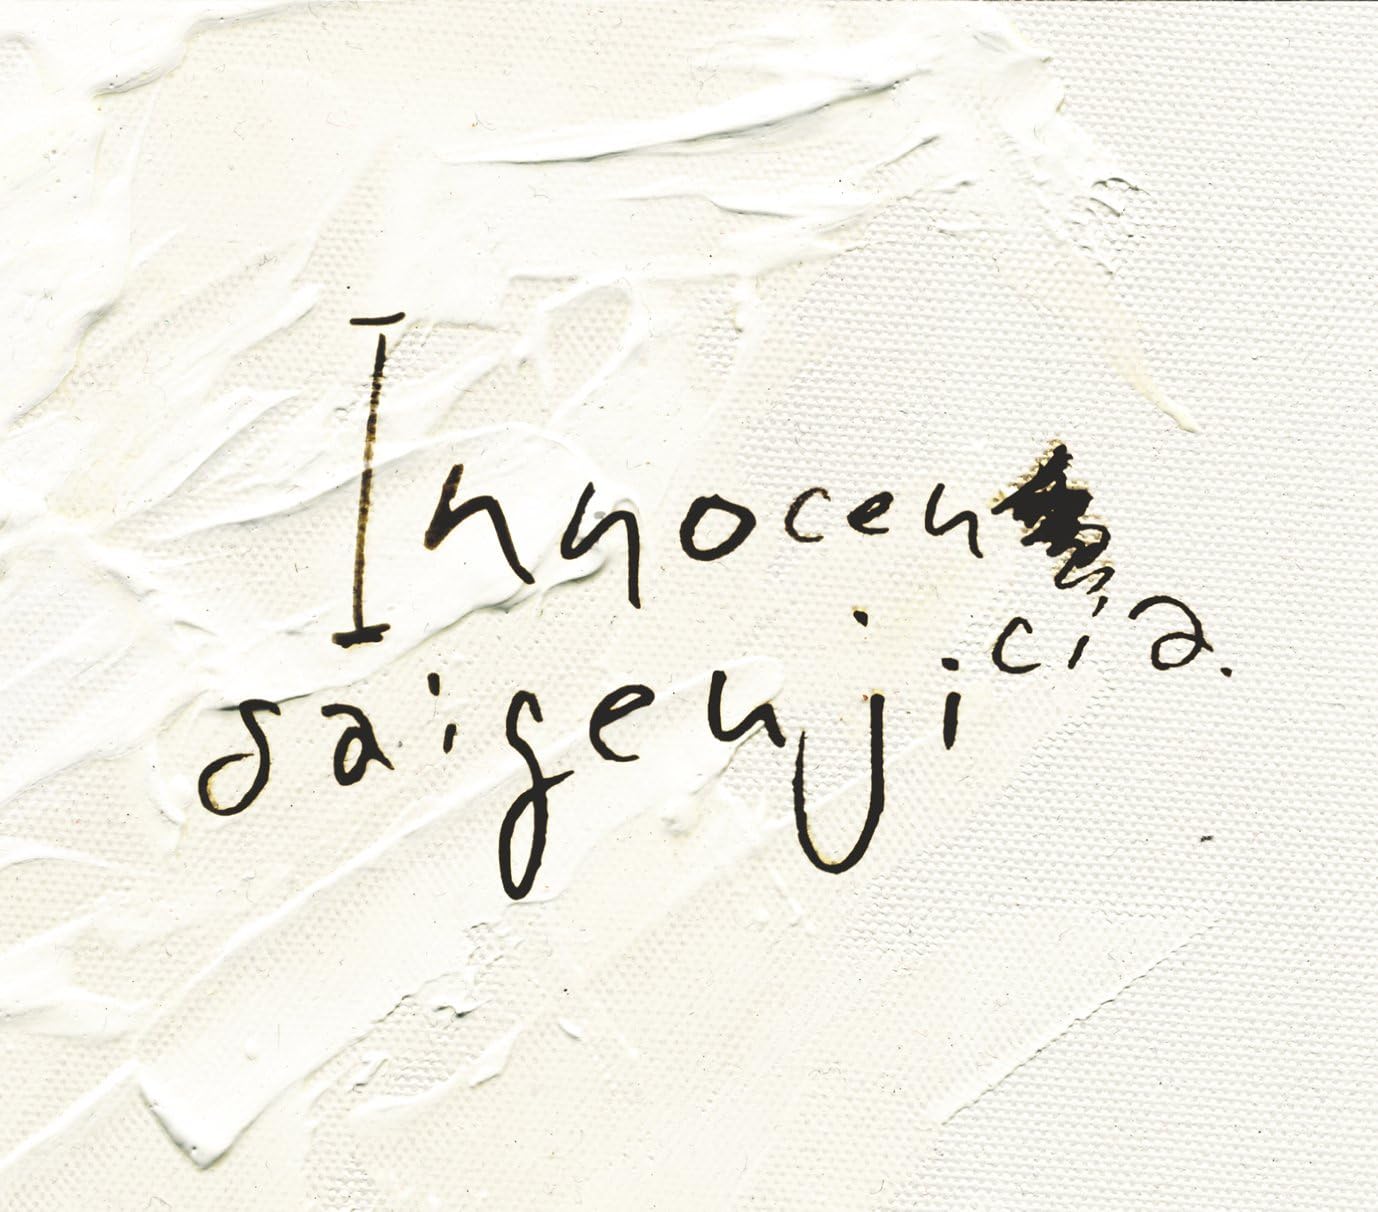 Innocencia.
saigenji